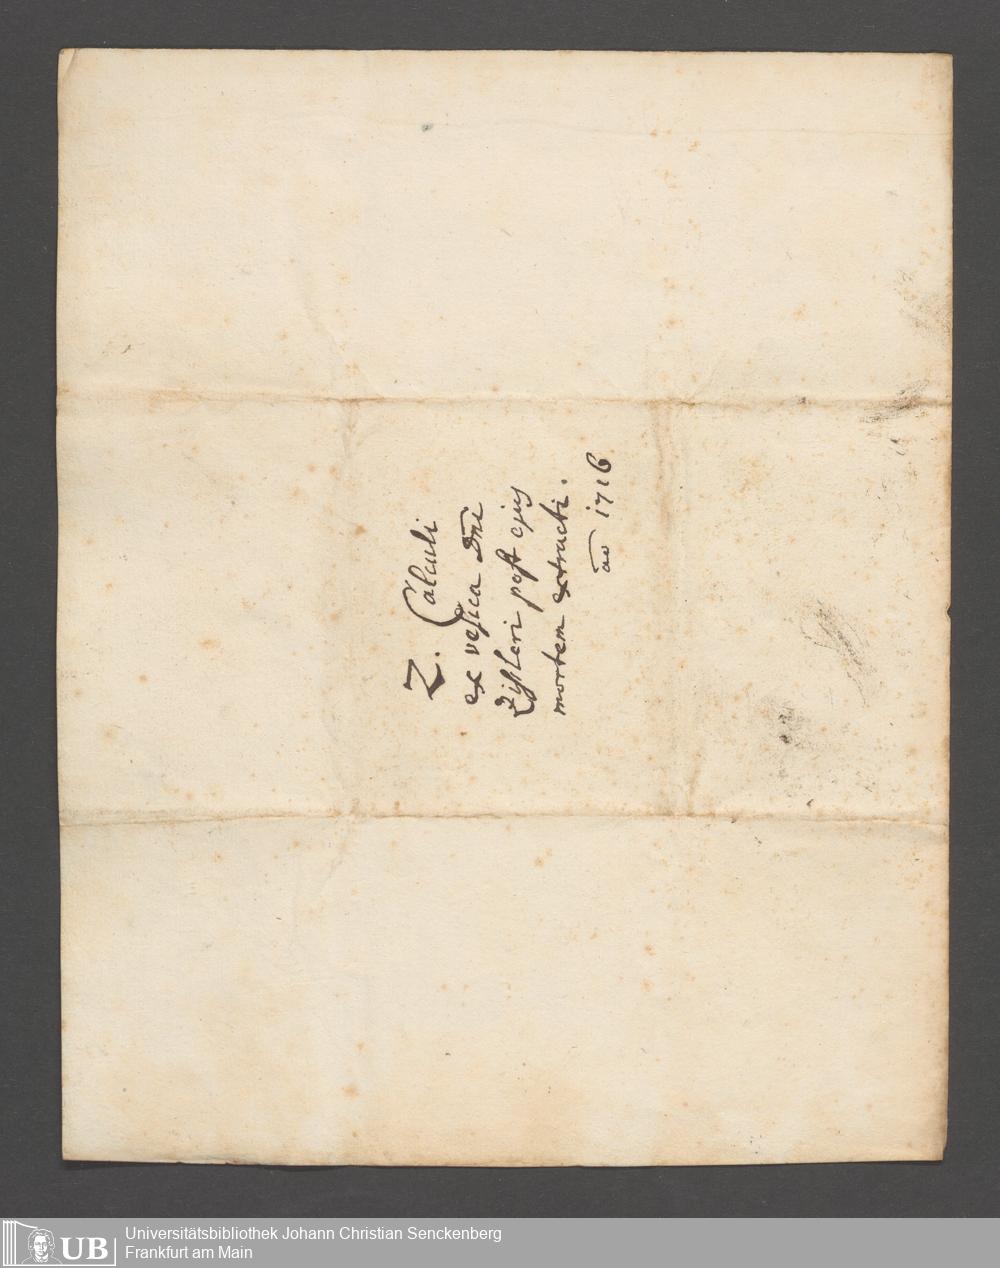 Z. Calculi
ex vesica Dn̄i
Zisleri post ejus
mortem extracti.
ao 1716
UB
Universitätsbibliothek Johann Christian Senckenberg
Frankfurt am Main